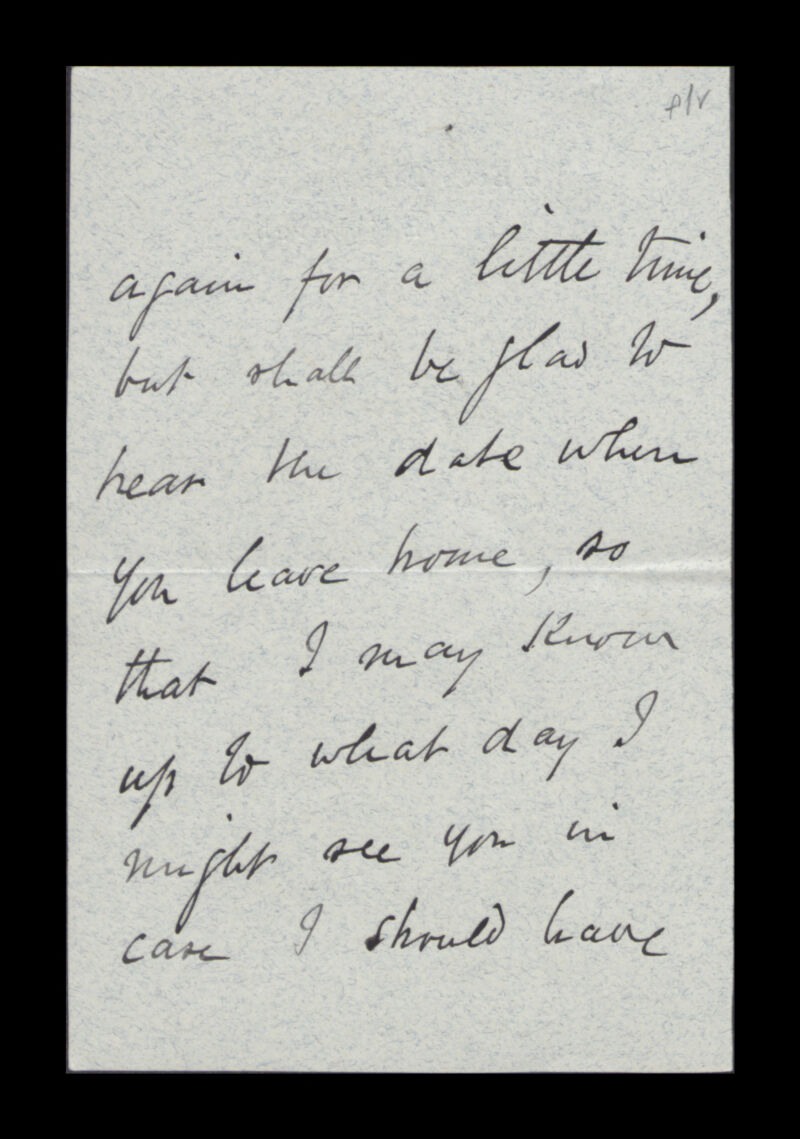 again for a little time,
but shall be glad to
hear the date when
you leave home, so
that I may know
up to what day I
might see you in
case I should have